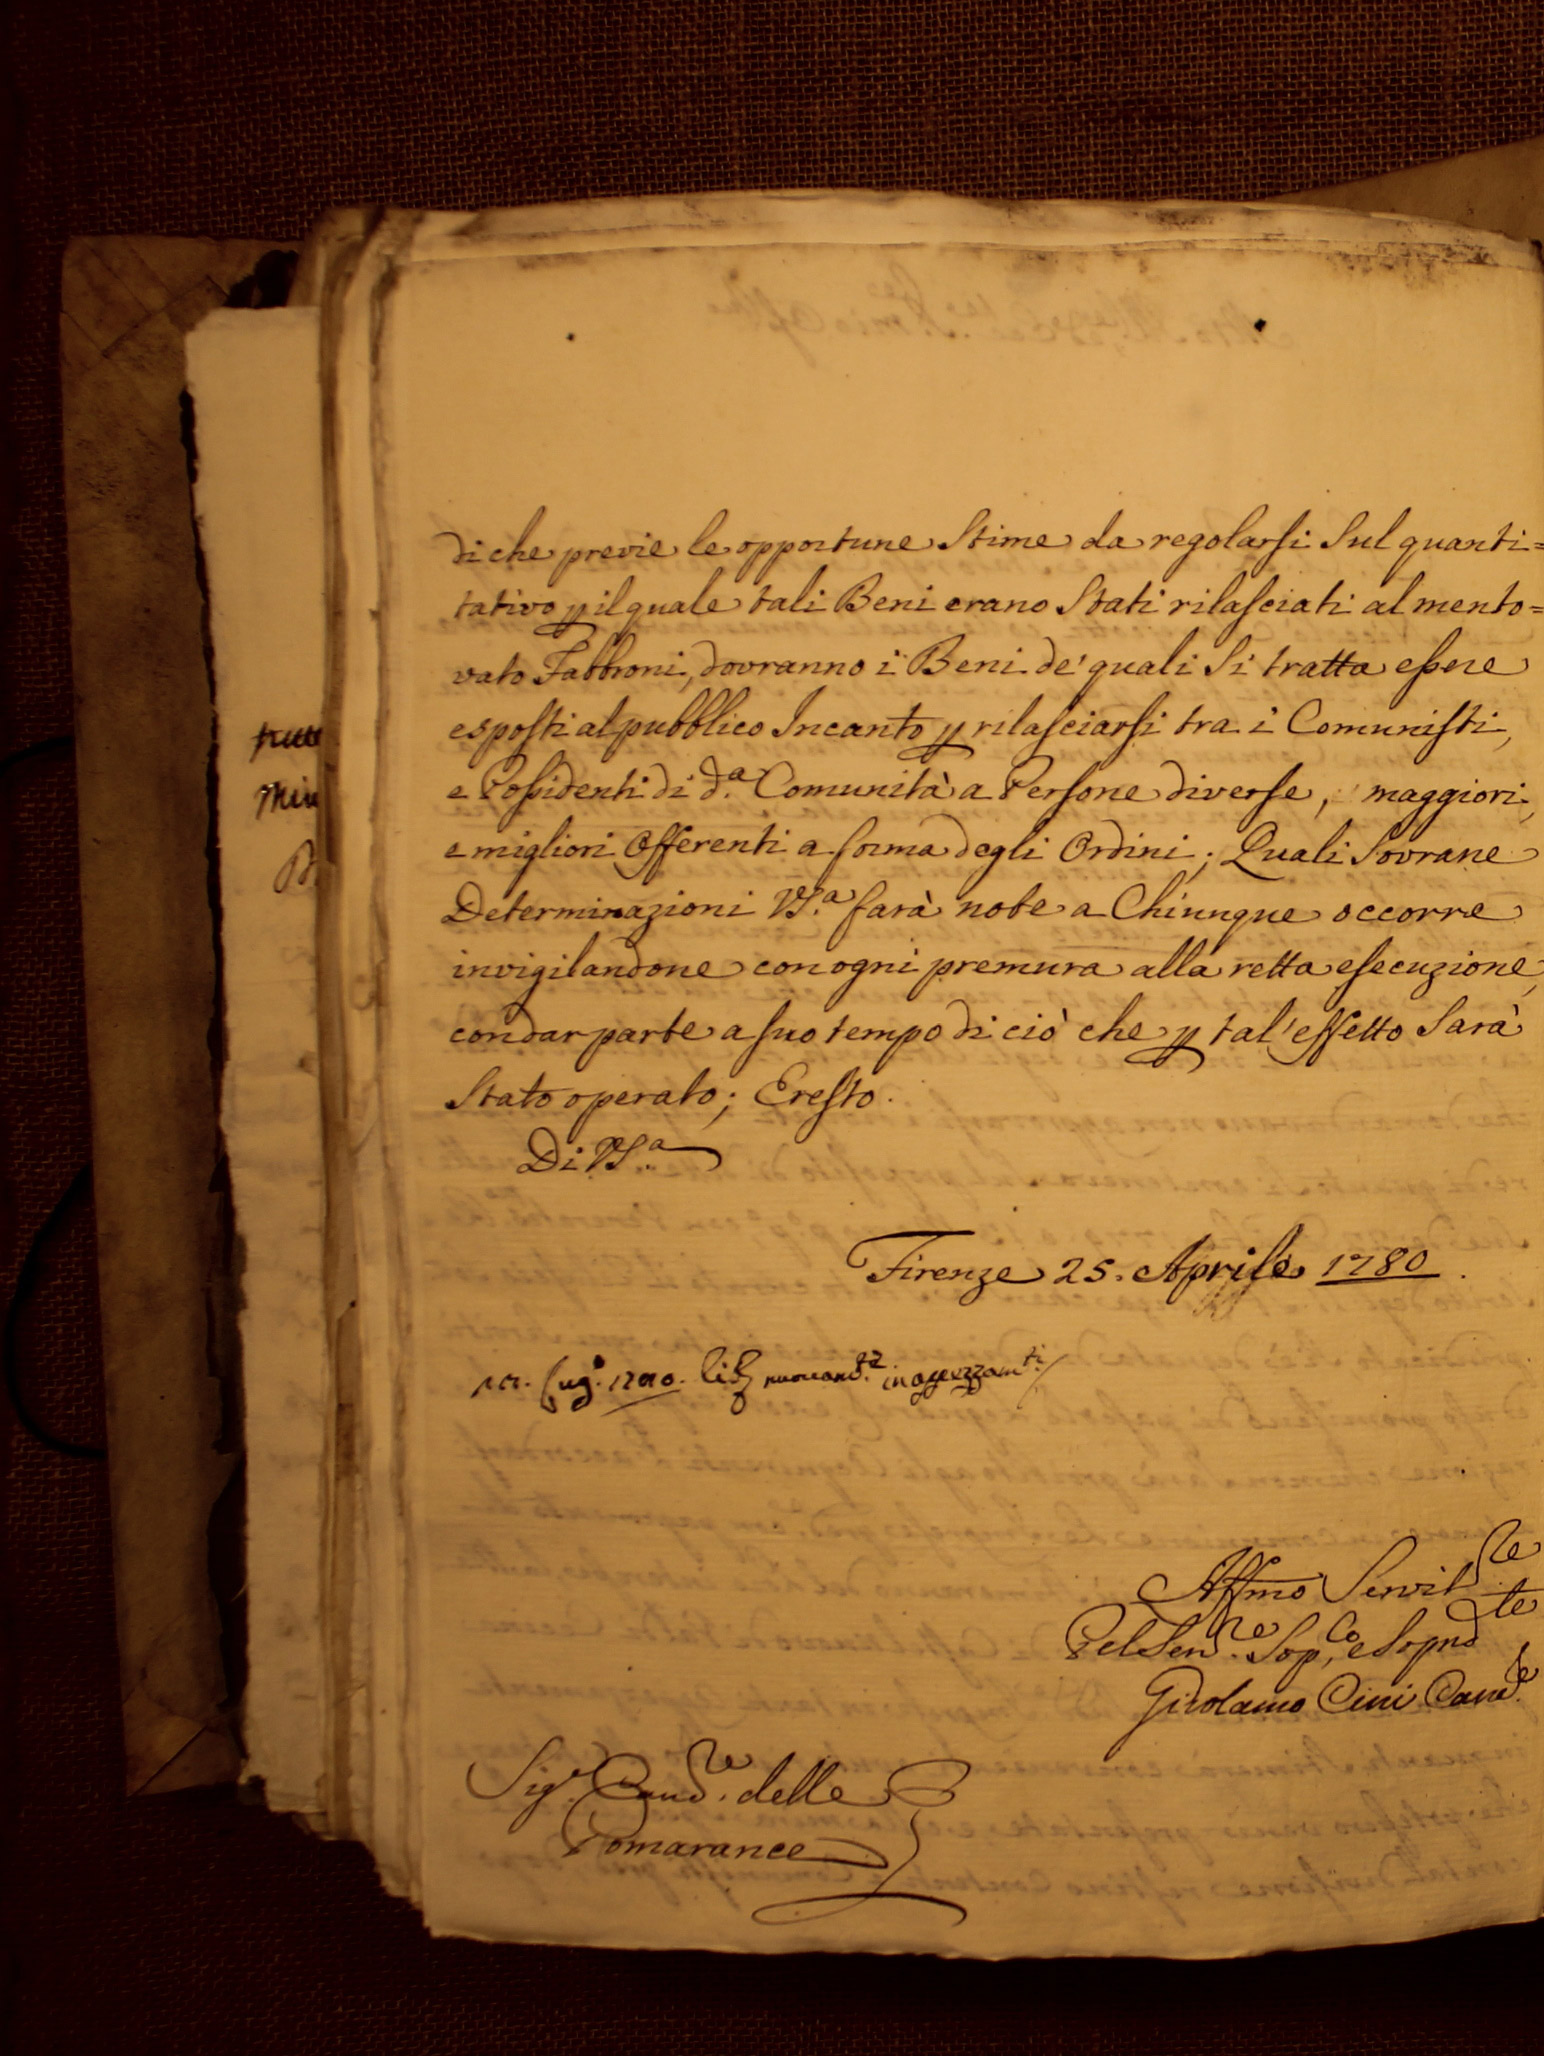 di che previe le opportune Stime da regolarsi Sul quanti=
tativo p il quale tali Beni erano Stati rilasciati al mento=
vato Fabbroni, dovranno i Beni de' quali Si tratta essere
esposti al pubblico Incanto p rilasciarsi tra i Comunisti,
e Possidenti di d.ª Comunità a Persone diverse, maggiori,
e migliori Offerenti a forma degli Ordini; Quali Sovrane
Determinazioni VS.ª farà note a Chiunque occorre
invigilandone con ogni premura alla retta esecuzione,
con dar parte a suo tempo di ciò che p tal' effetto Sarà
Stato operato; E resto.
Di VS.ª
Firenze 25. Aprile 1780.
Affmo Servit.re
Pel Sen.re Sop.co e Sopnd.te
Girolamo Cini Canc.re
Sig.r Canc.re delle
Pomarance